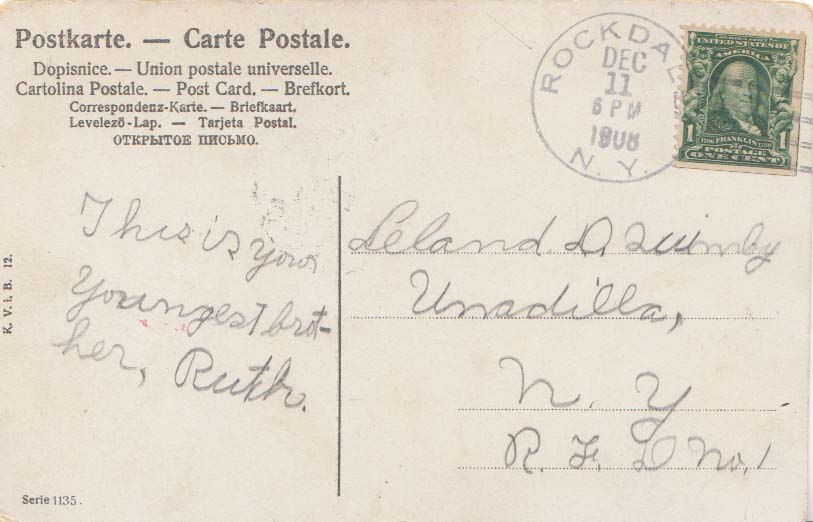 Postkarte. — Carte Postale.
Dopisnice. — Union postale universelle.
Cartolina Postale. — Post Card. — Brefkort.
Correspondenz-Karte. — Briefkaart.
Levelező-Lap. — Tarjeta Postal.
ОТКРЫТОЕ ПИСЬМО.
ROCKDALE
DEC
11
6 PM
1908
N.Y.
UNITED STATES OF
AMERICA
1 FRANKLIN 1
POSTAGE
ONE CENT
This is your
youngest brot-
her, Ruth.
Leland D Quimby
Unadilla,
N. Y
R. F. D No. 1
K. V. i B. 12.
Serie 1135.